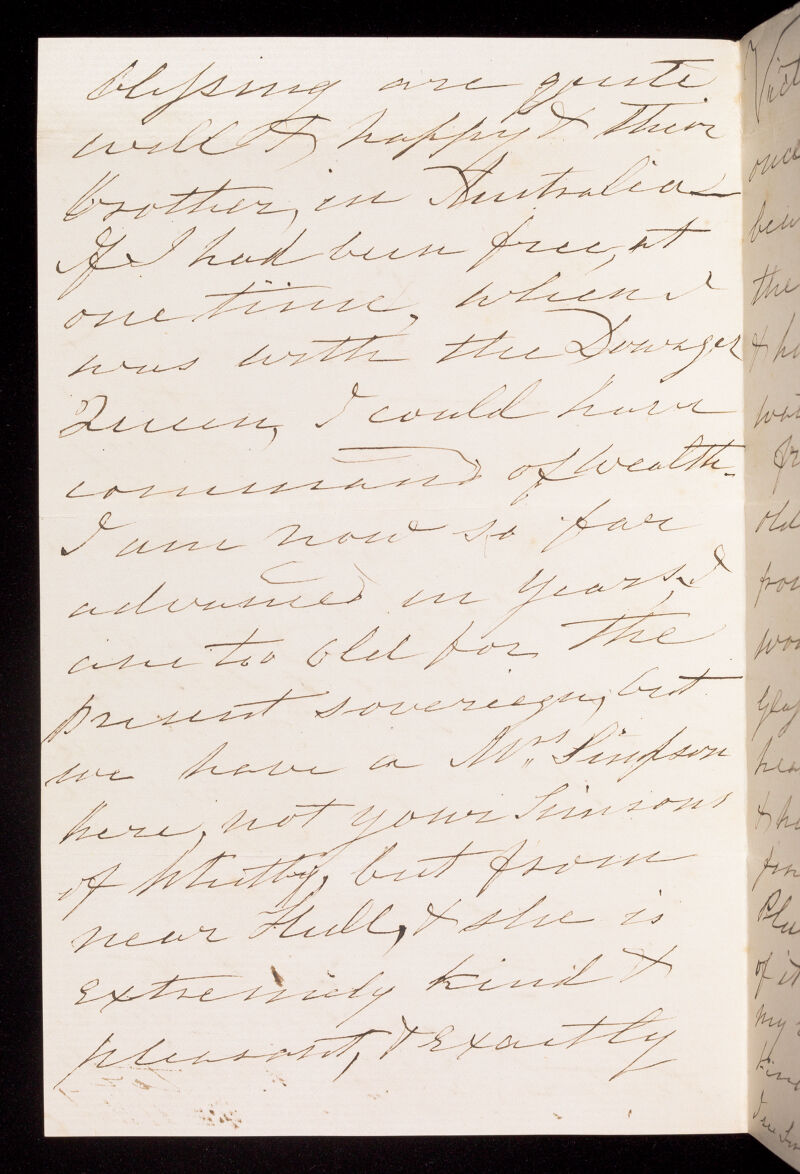 blessing are quite
well & happy & their
brother, in Australia
If I had been free, at
one time, when I
was with the Dowager
Queen, I could have
command of wealth-
I am now so far
advanced in years, I
am too old for the
present sovereign, but
we have a Mrs Simpson
here, not your Simsons
of Whitby, but from
near Hull, & she is
extremely kind &
pleasant, & exactly
once
the
& he
old
of it
my